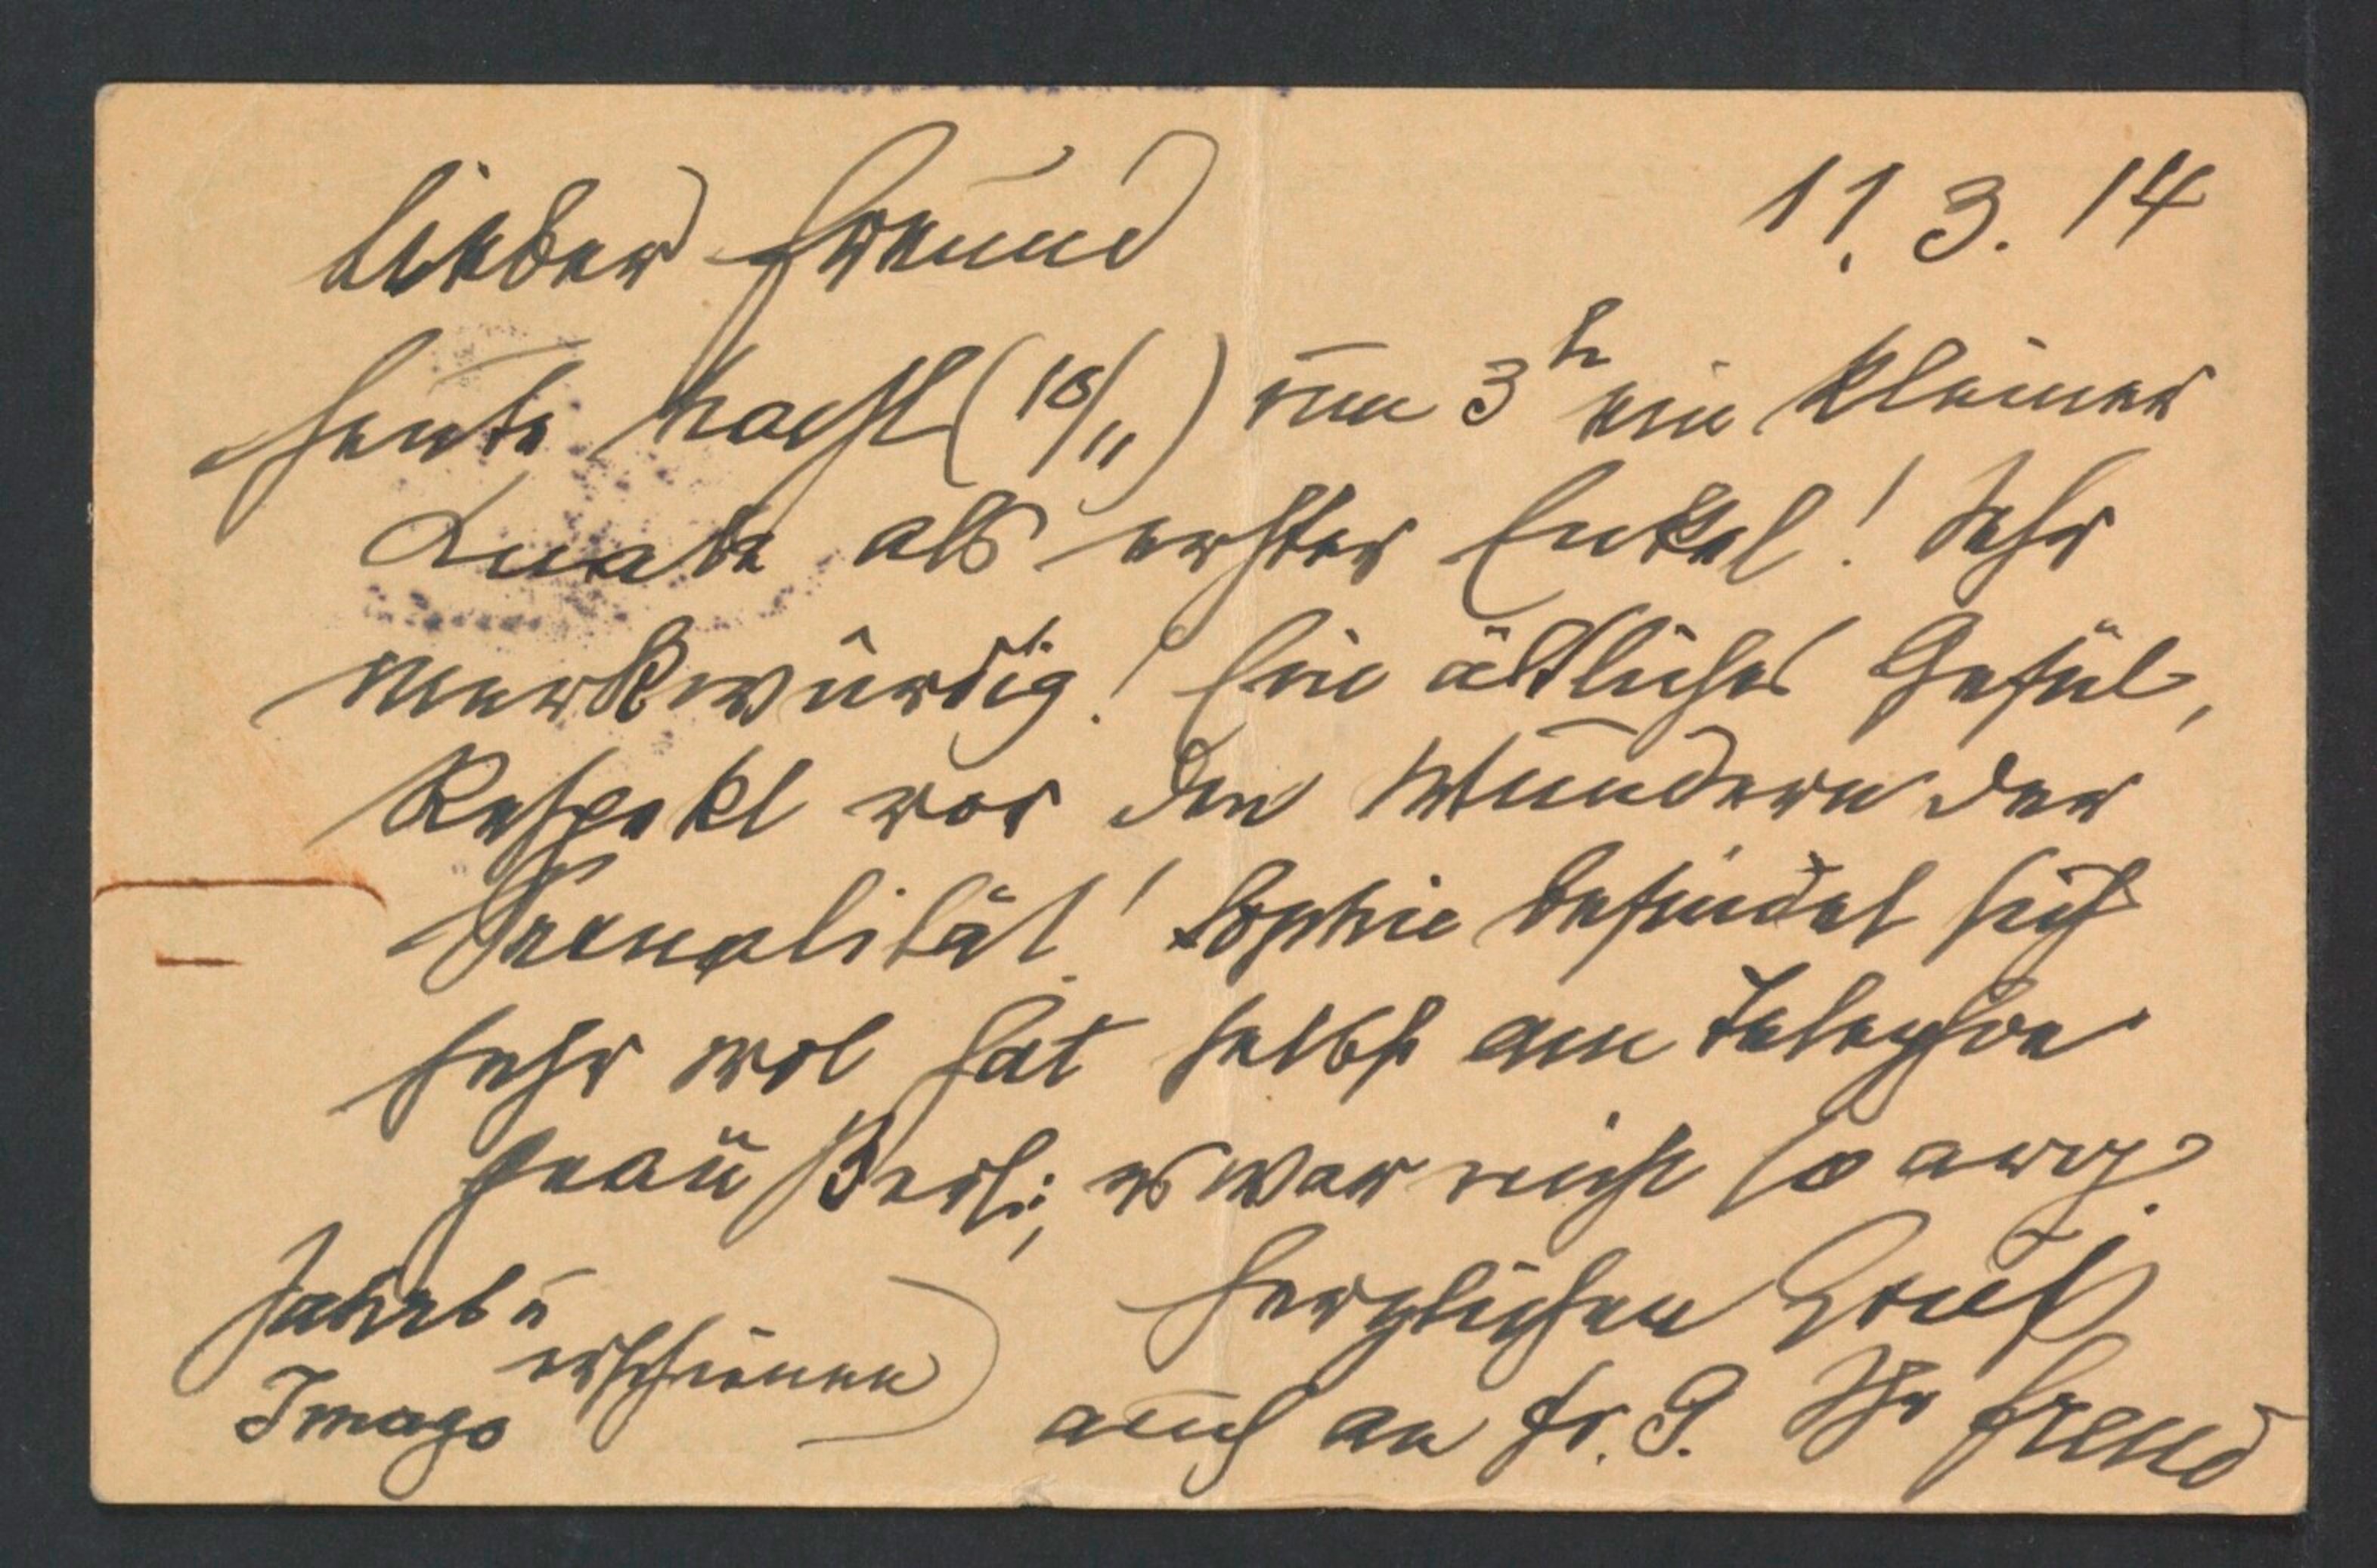 11. 3. 14
Lieber Freund
Heute Nacht (10/11) um 3h ein kleiner
Knabe als erster Enkel! Sehr
merkwürdig! Ein ältliches Gefül,
Respekt vor den Wundern der
Sexualität! Sophie befindet sich
sehr wol hat selbst am Telephon
es war nicht so arg.
Herzlichen Gruß
auch an Fr. G. Ihr Freud
Jahrb u
Imago erschienen